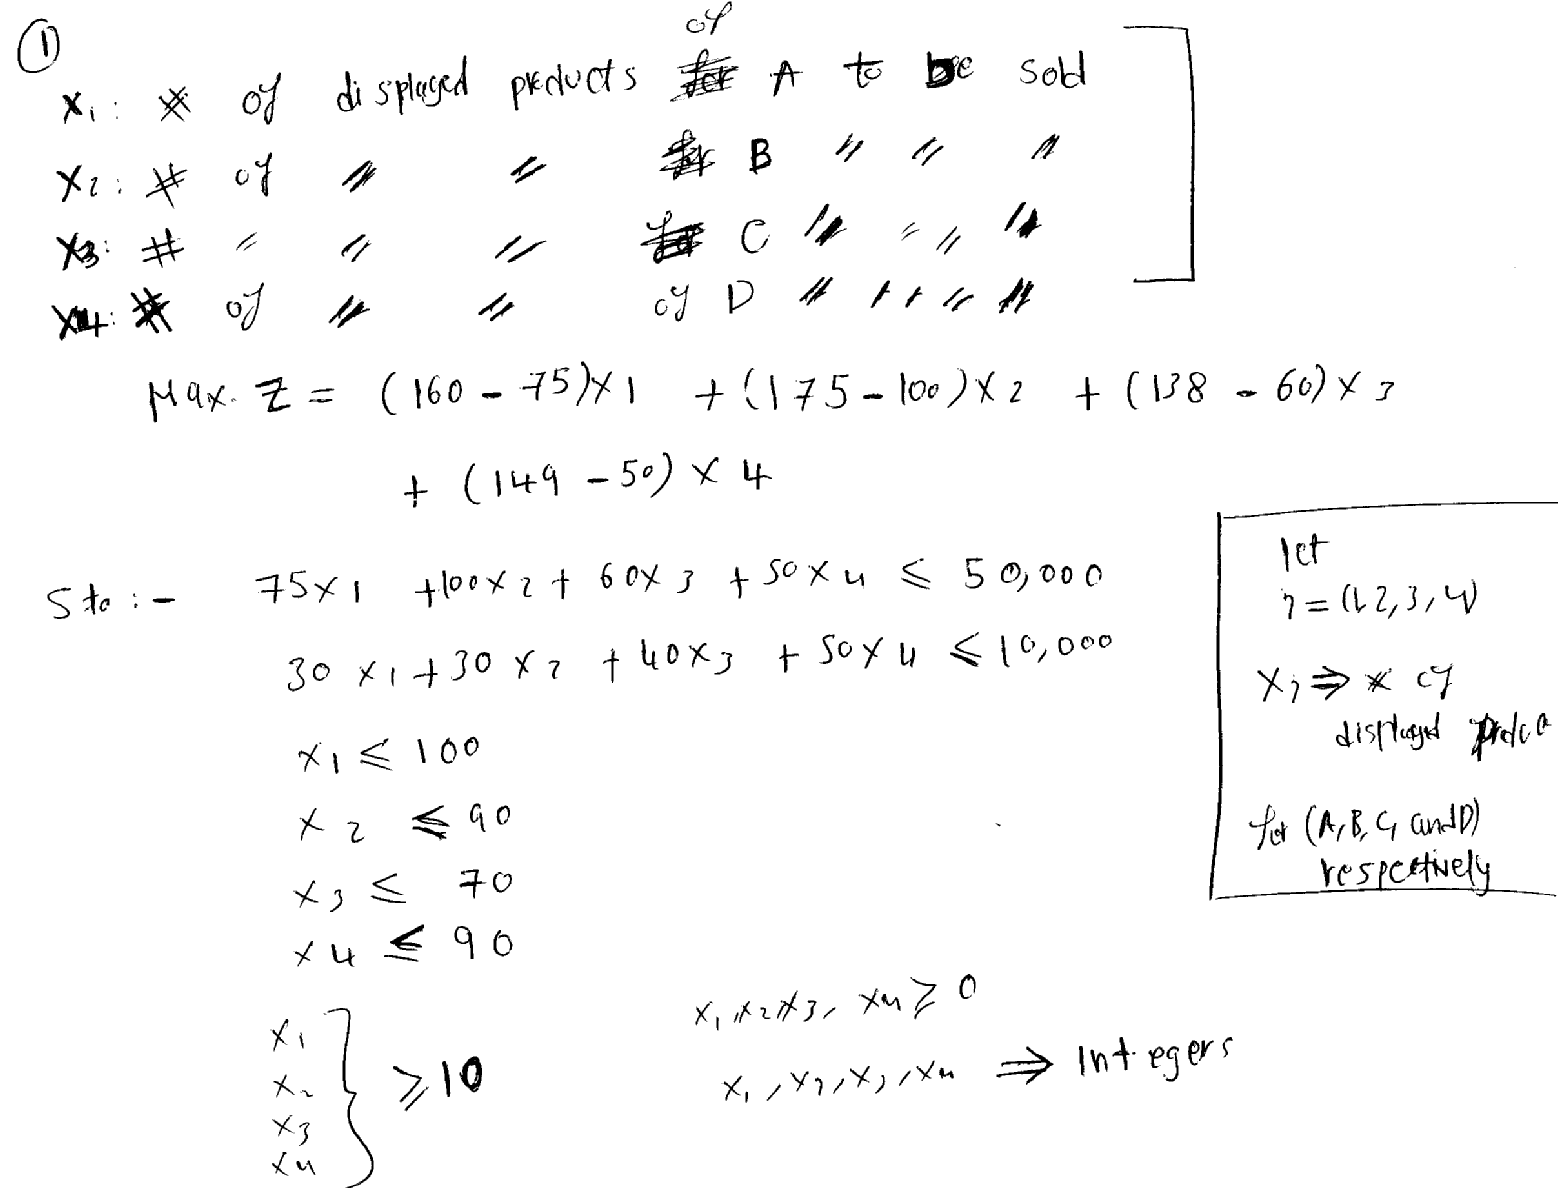 ①
of
X1: # of displayed products for A to be sold
X2: # of 〃 〃 for B 〃 〃 〃
X3: # 〃 〃 〃 for C 〃 〃 〃 〃
X4: # of 〃 〃 of D 〃 〃 〃 〃
Max. Z = (160 - 75)X1 + (175 - 100)X2 + (138 - 60)X3
+ (149 - 50)X4
Sto :- 75X1 + 100X2 + 60X3 + 50X4 ≤ 50,000
30X1 + 30X2 + 40X3 + 50X4 ≤ 10,000
X1 ≤ 100
X2 ≤ 90
X3 ≤ 70
X4 ≤ 90
X1
X2
X3
X4
} ≥ 10
X1, X2, X3, X4 ≥ 0
X1, X2, X3, X4 ⇒ Integers
let
i = (1,2,3,4)
Xi ⇒ # of
displayed
for (A, B, C, and D)
respectively